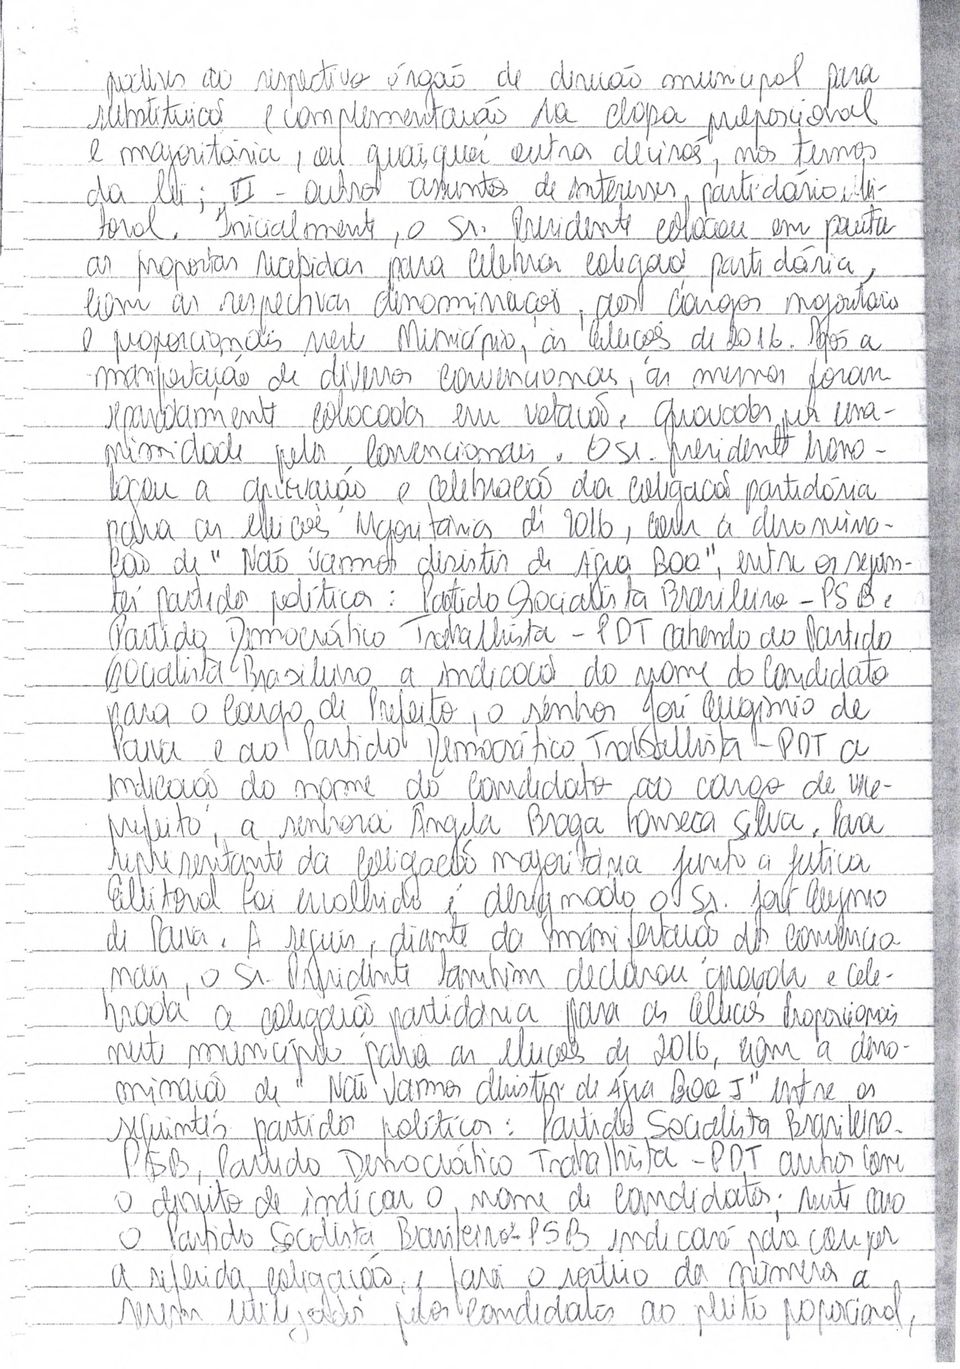 poderes ao respectivo órgão de direção municipal para
substituição e complementação na chapa proporcional
e majoritária, ou quaisquer outra decisão, nos termos
da lei; VI - outros assuntos de interesse, partidário, elei-
toral. Inicialmente, o Sr. Presidente colocou em pauta
as propostas recebidas para celebrar coligação partidária,
com as respectivas denominações, aos cargos majoritário
e proporcionais neste Município, às eleições de 2016. Após a
manifestação de diversos convencionais, as mesmas foram
separadamente colocadas em votação, aprovadas por una-
nimidade pelos Convencionais. O Sr. presidente homo-
logou a aprovação e celebração da coligação partidária
para as eleições Majoritárias de 2016, com a denomina-
ção de "Não vamos desistir de Água Boa", entre os seguin-
tes partidos políticos: Partido Socialista Brasileiro - PSB e
Partido Democrático Trabalhista - PDT cabendo ao Partido
Socialista Brasileiro a indicação do nome do Candidato
para o Cargo de Prefeito, o senhor José Eugênio de
Paiva e ao Partido Democrático Trabalhista - PDT a
indicação do nome do candidato ao cargo de vice-
prefeito, a senhora Ângela Braga Fonseca Silva. Para
representante da coligação majoritária junto a justiça
Eleitoral foi escolhido e designado o Sr. José Eugênio
de Paiva. A seguir, diante da manifestação dos convencio-
nais, o Sr. Presidente também declarou aprovada e cele-
brada a coligação partidária para as eleições Proporcionais
neste município para as eleições de 2016, com a deno-
minação de "Não Vamos desistir de Água Boa I" entre os
seguintes partidos políticos: Partido Socialista Brasileiro-
PSB, Partido Democrático Trabalhista - PDT ambos com
o direito de indicar o nome de candidatos; neste caso
o Partido Socialista Brasileiro - PSB indicará para compor
a referida coligação, e para o sorteio do números a
serem utilizados pelos candidatos ao pleito proporcional,